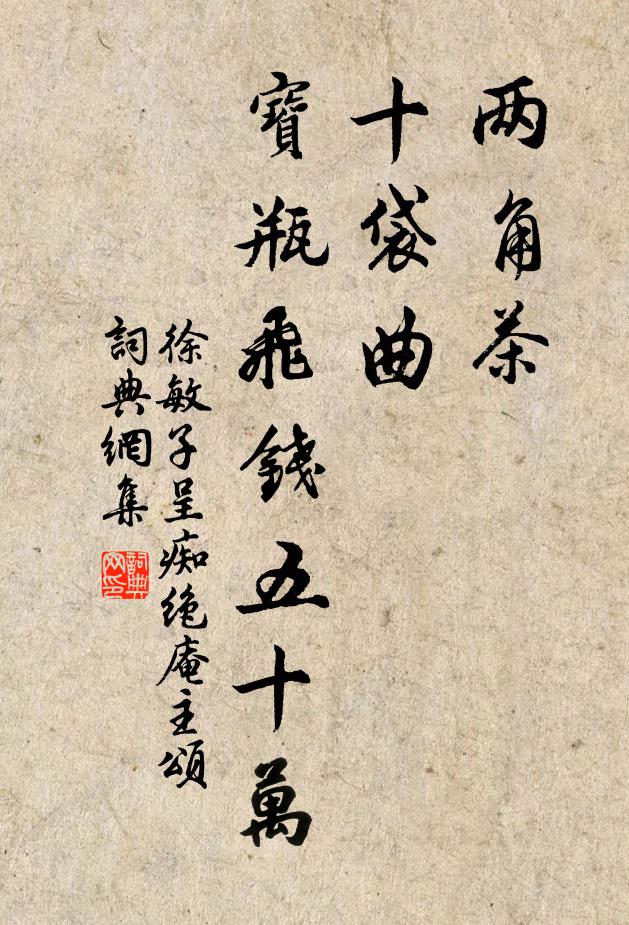 两角茶
十袋曲
寶瓶飛錢五十萬
徐敏子呈痴绝庵主頌
詞典網集
詞典网印